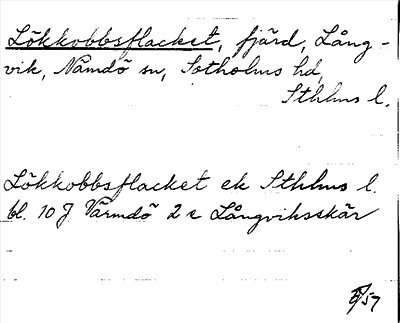 Lökkobbsflacket, fjärd, Lång-
vik, Nämdö sn, Sotholms hd,
Sthlms l.
Lökkobbsflacket ek Sthlms l.
bl. 10 J Värmdö 2 c Långviksskär
/57